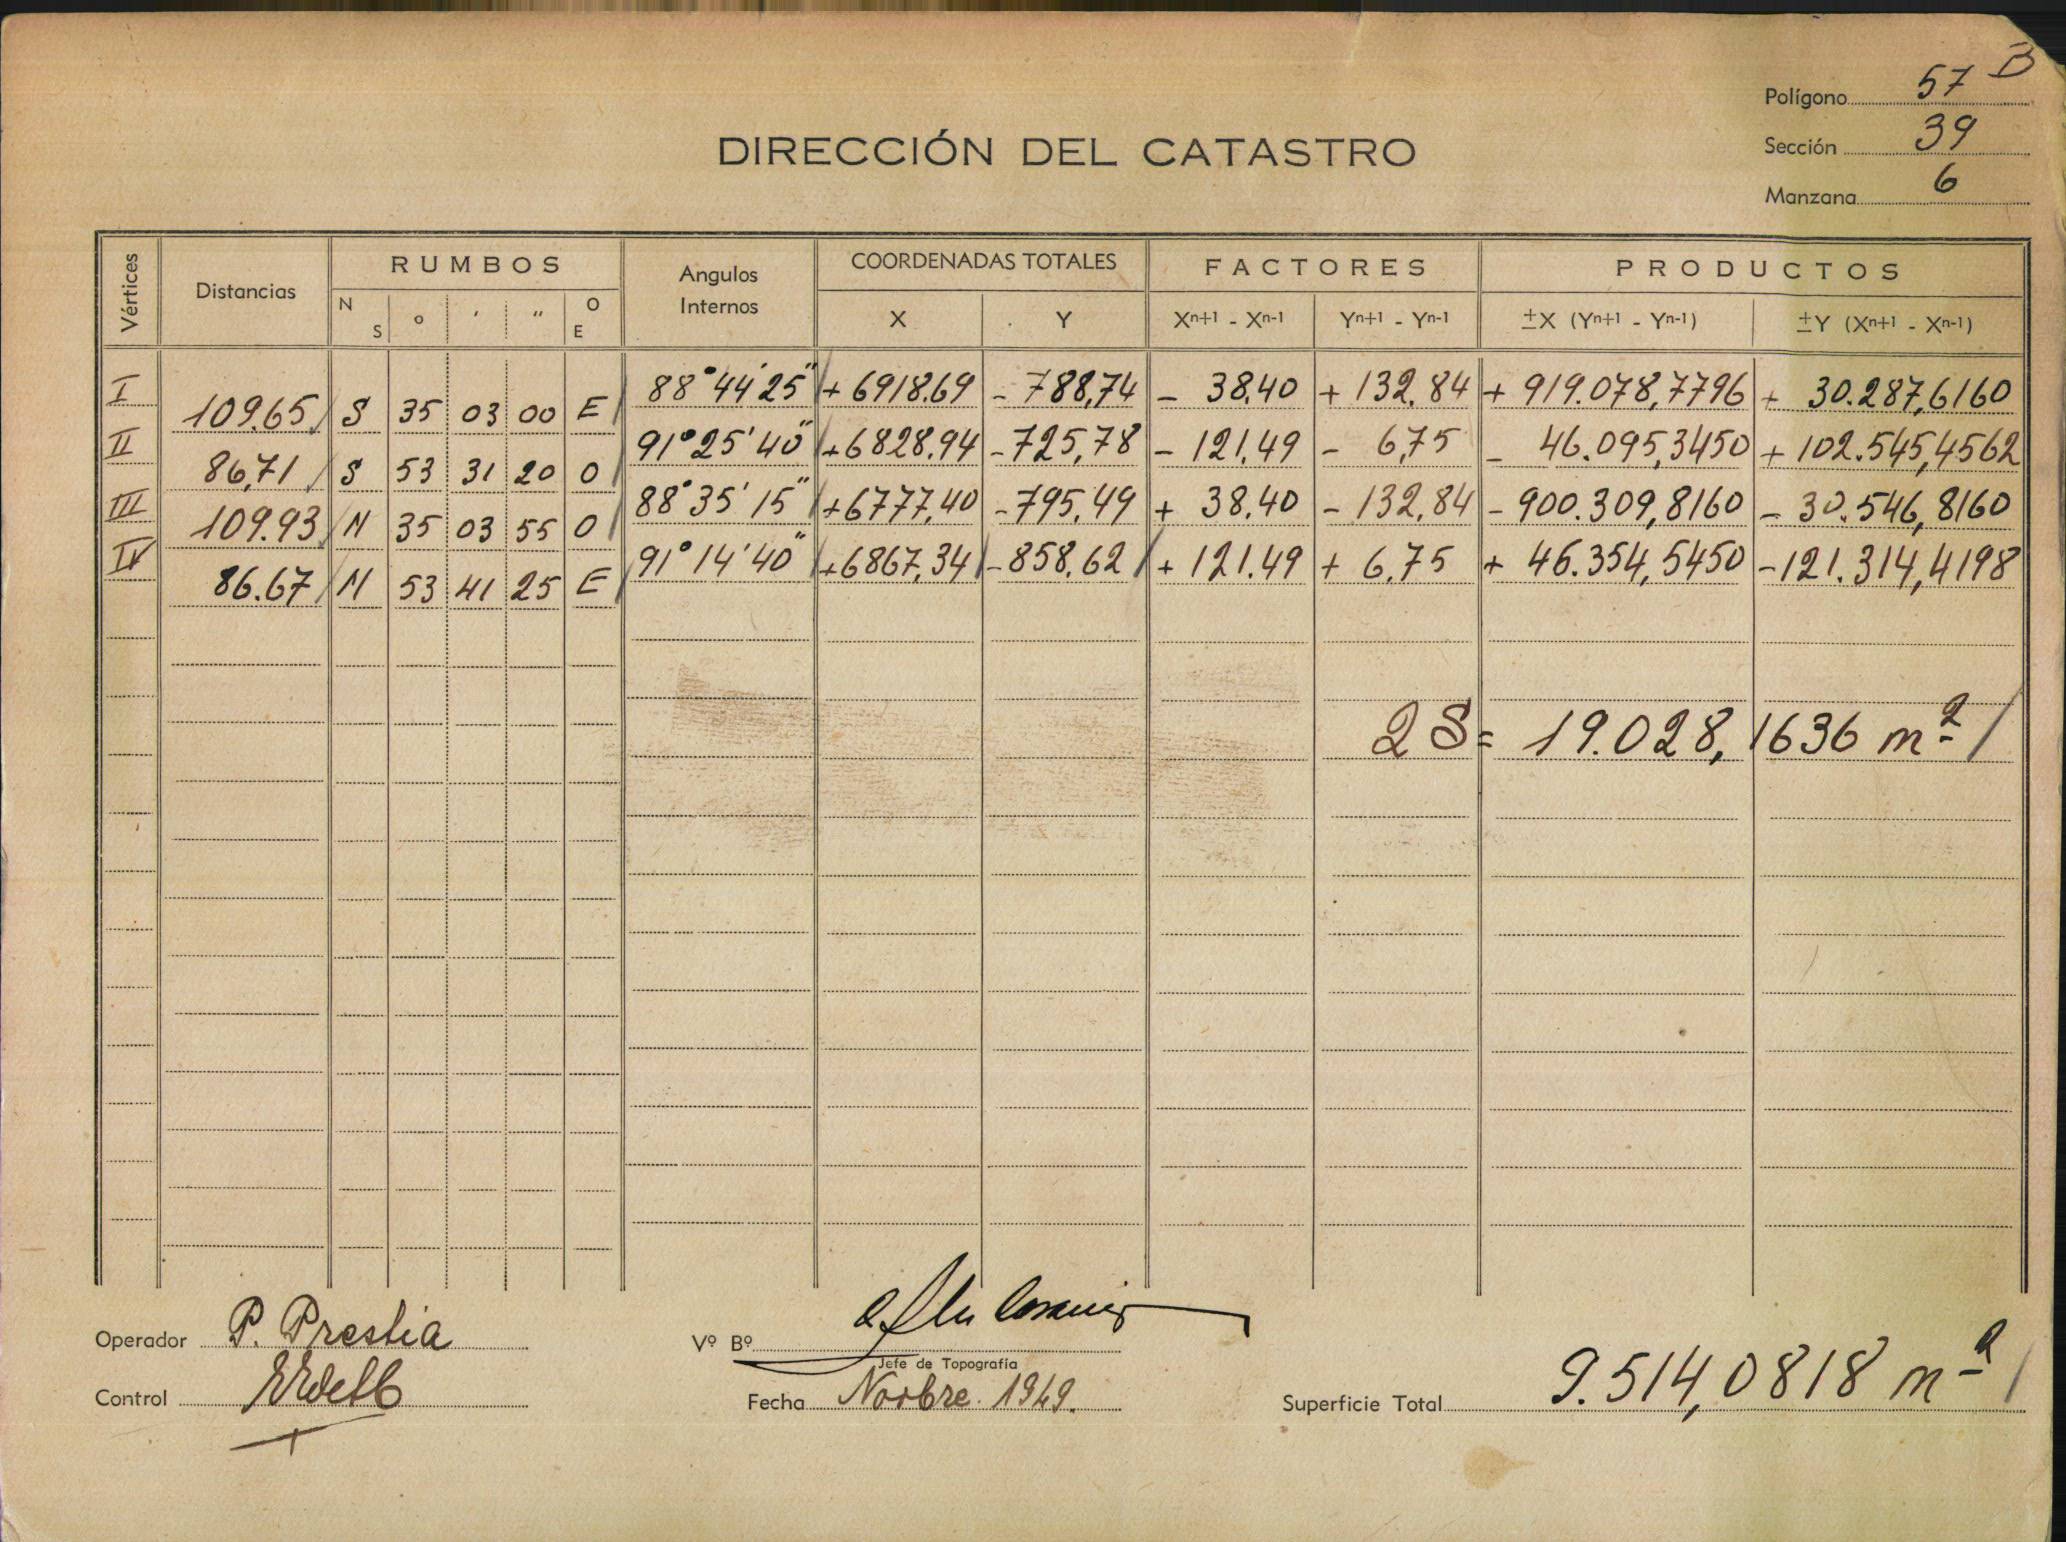 B
Polígono 57
Sección 39
Manzana 6
DIRECCIÓN DEL CATASTRO
Vértices Distancias RUMBOS Angulos Internos COORDENADAS TOTALES FACTORES PRODUCTOS
N S o ' " O E X Y Xn+1 - Xn-1 Yn+1 - Yn-1 ±X (Yn+1 - Yn-1) ±Y (Xn+1 - Xn-1)
I 88°44'25" + 6918.69 - 788,74 - 38,40 + 132,84 + 919.078,7796 + 30.287,6160
109.65 S 35 03 00 E
II 91°25'40" +6828.94 -725,78 - 121,49 - 6,75 - 46.095,3450 + 102.545,4562
86,71 S 53 31 20 O
III 88°35'15" +6777,40 -795,49 + 38,40 - 132,84 - 900.309,8160 - 30.546,8160
109.93 N 35 03 55 O
IV 91°14'40" +6867,34 -858,62 + 121,49 + 6,75 + 46.354,5450 -121.314,4198
86.67 N 53 41 25 E
2S= 19.028,1636 m²
Operador P. Prestia
Vº Bº
Jefe de Topografía
Control
Fecha Novbre. 1949.
Superficie Total 9.514,0818 m²